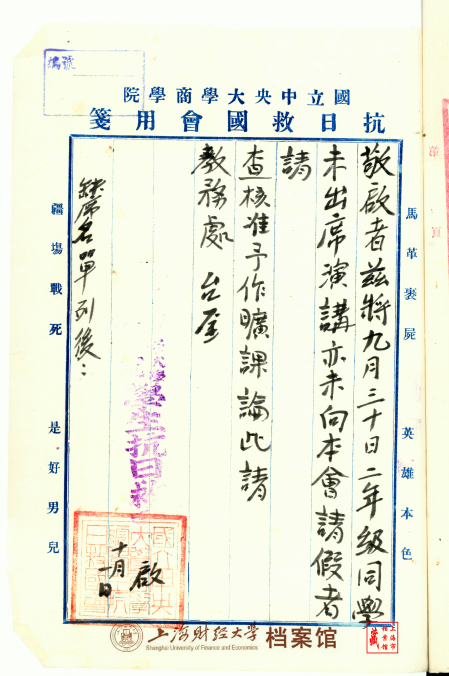 號編
國立中央大學商學院
抗日救國會用箋
馬革裹屍 英雄本色
敬啟者茲將九月三十日二年級同學
未出席演講亦未向本會請假者
請
查核准予作曠課論此請
教務處 台鉴
學生抗日救
啟
十月一日
缺席名單列後：
疆場戰死 是好男兒
上海财经大学 档案馆
Shanghai University of Finance and Economics
上海市档案馆藏